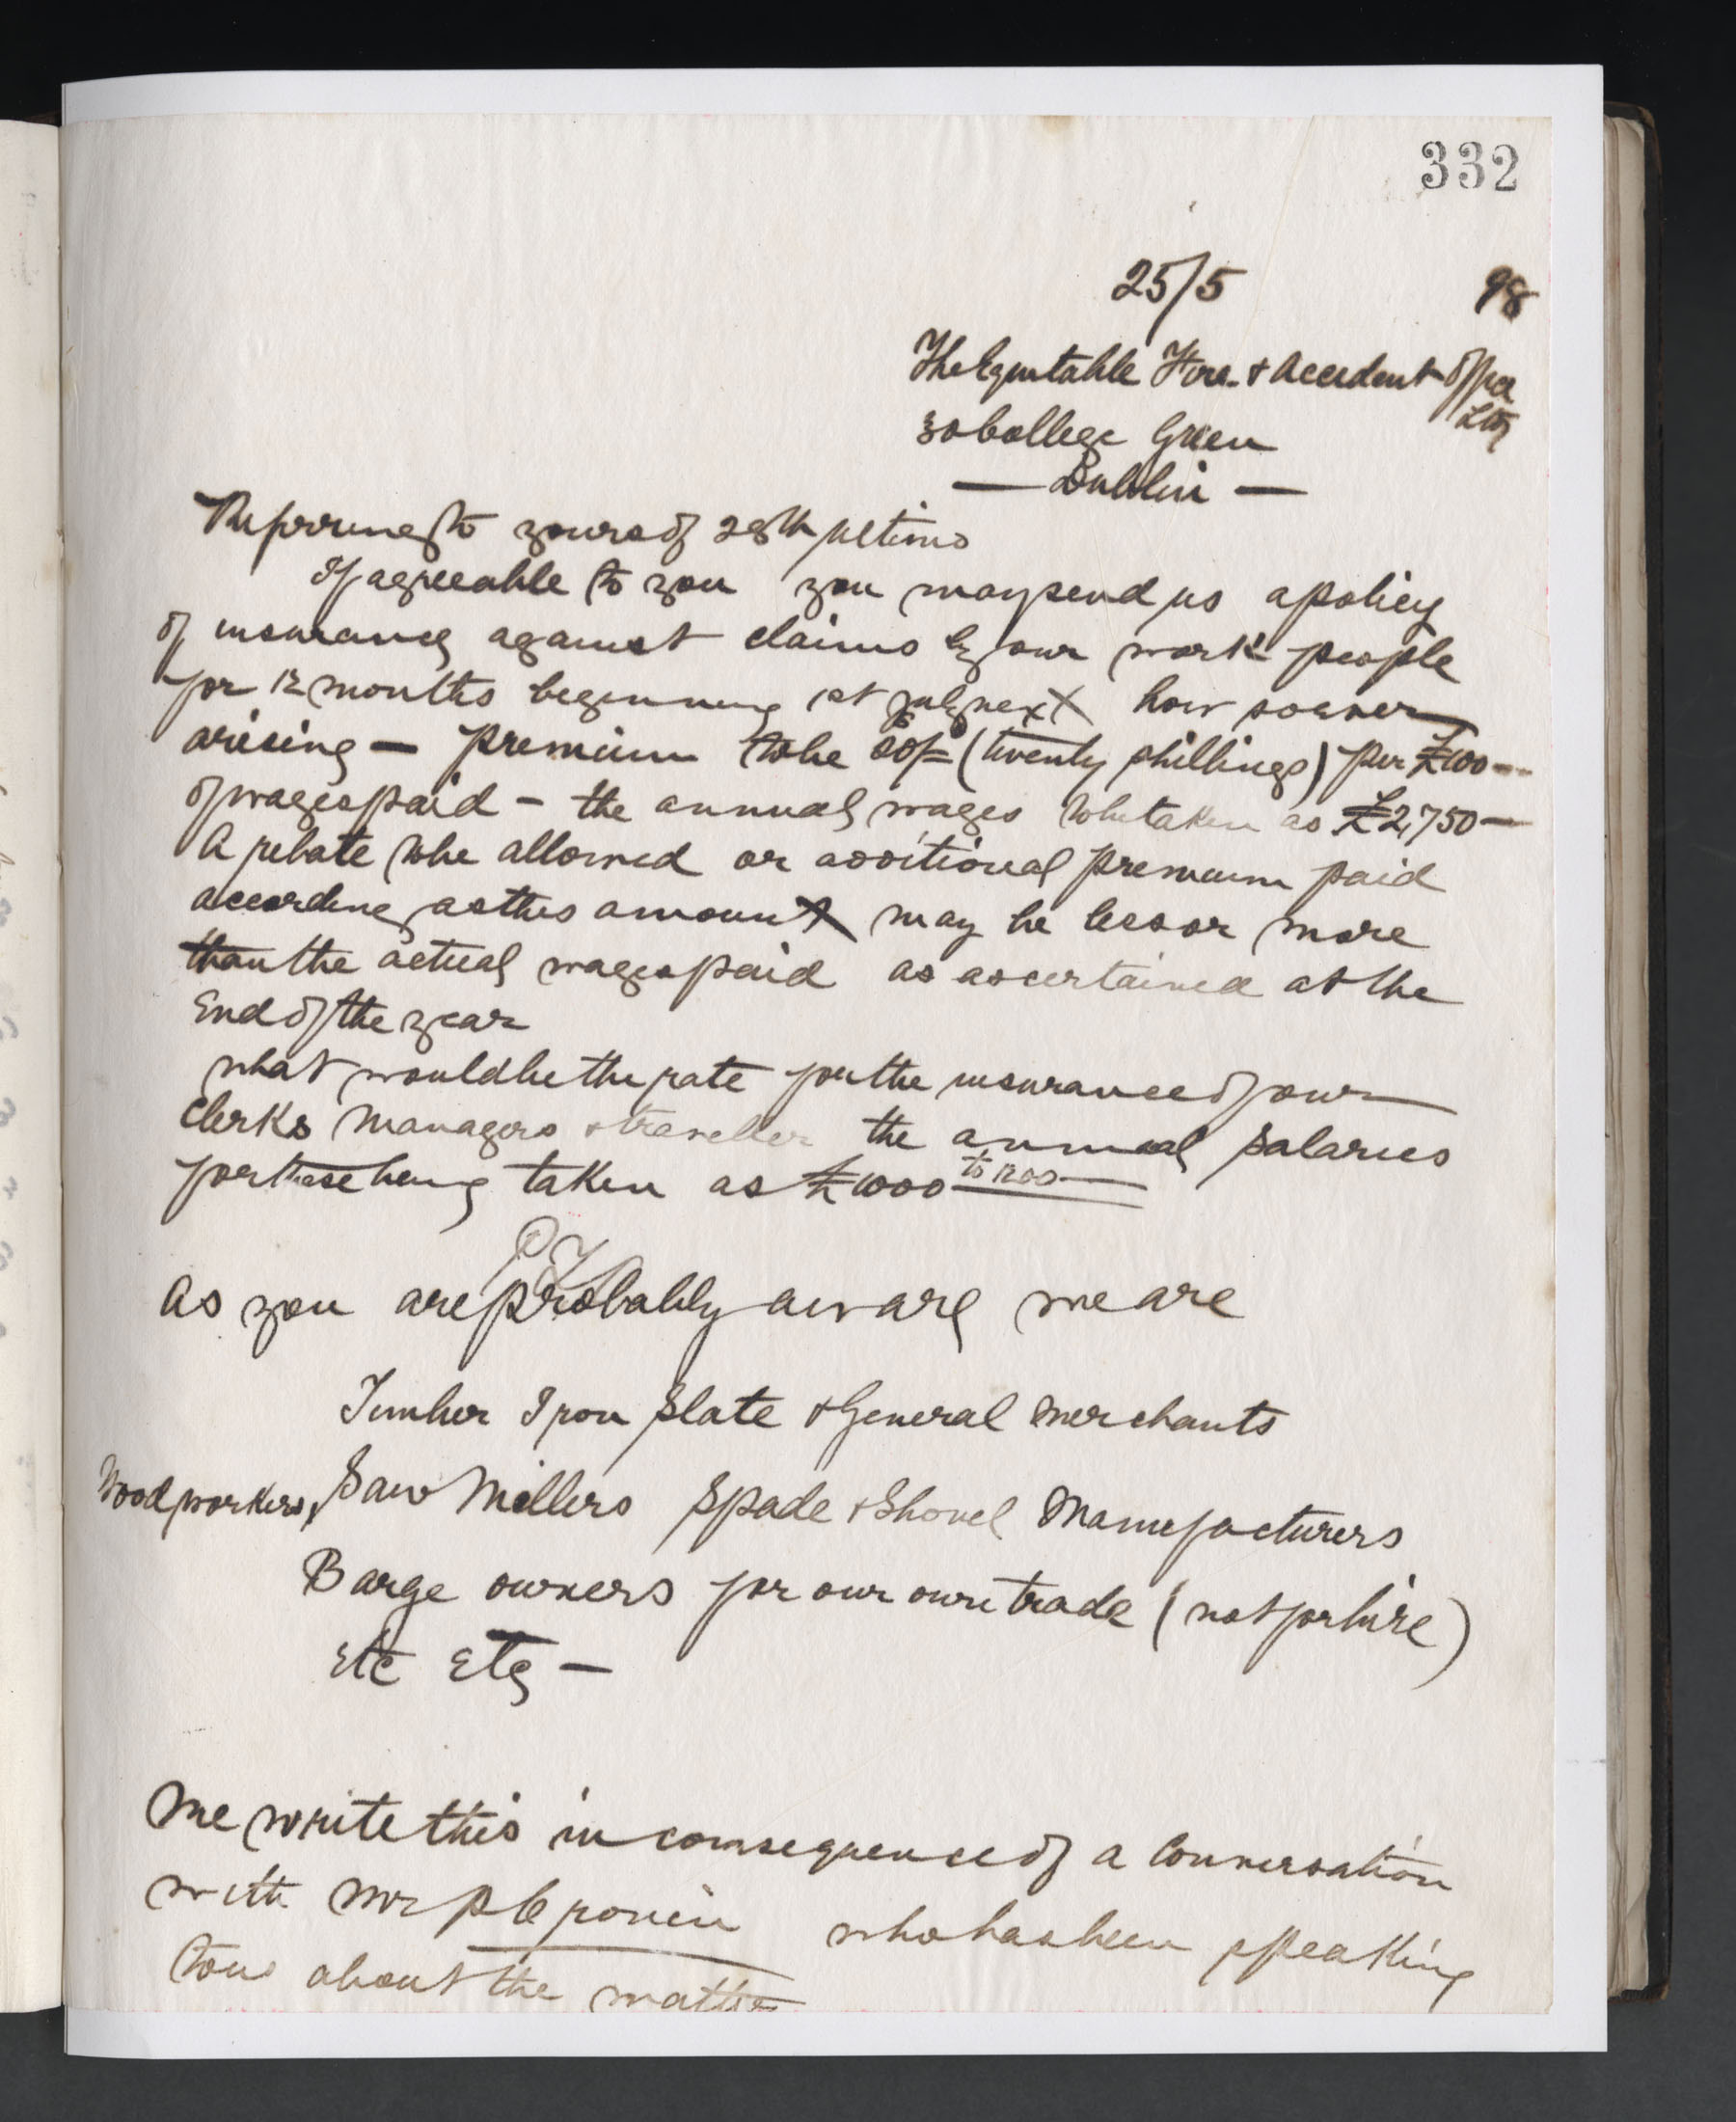 332
25/5 98
The Equitable Fire & Accident Office
Ltd
30 College Green
— Dublin —
Referring to yours of 28th ultimo
If agreeable to you you may send us a policy
of insurance against claims by our work people
for 12 months beginning 1st July next how soever
arising — premium to be 20/= (twenty shillings) per £100 —
of wages paid — the annual wages to be taken as £2,750 —
A rebate to be allowed or additional premium paid
according as this amount may be less or more
than the actual wages paid as ascertained at the
End of the year
what would be the rate for the insurance of our
Clerks Managers & traveller the annual salaries
for these being taken as £1000 to 1200 —
As you are probably aware we are
Timber Iron Slate & General Merchants
Wood workers, Saw Millers Spade & Shovel Manufacturers
Barge owners for our own trade (not for hire)
Etc Etc —
We write this in consequence of a Conversation
with Mr P who has been speaking
to us about the matter